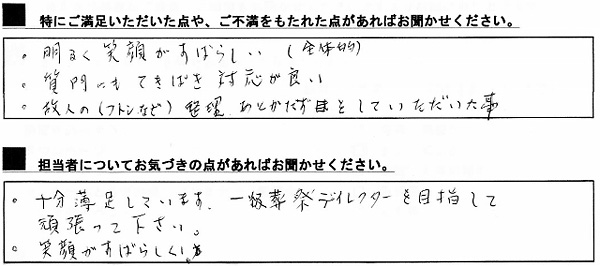 特にご満足いただいた点や、ご不満をもたれた点があればお聞かせください。
・明るく笑顔がすばらしい(全体的)
・質問にもてきぱき対応が良い
・故人の(フトンなど)整理、あとかたずけをしていただいた事
担当者についてお気づきの点があればお聞かせください。
・十分満足しています。一級葬祭ディレクターを目指して
頑張って下さい。
・笑顔がすばらしい